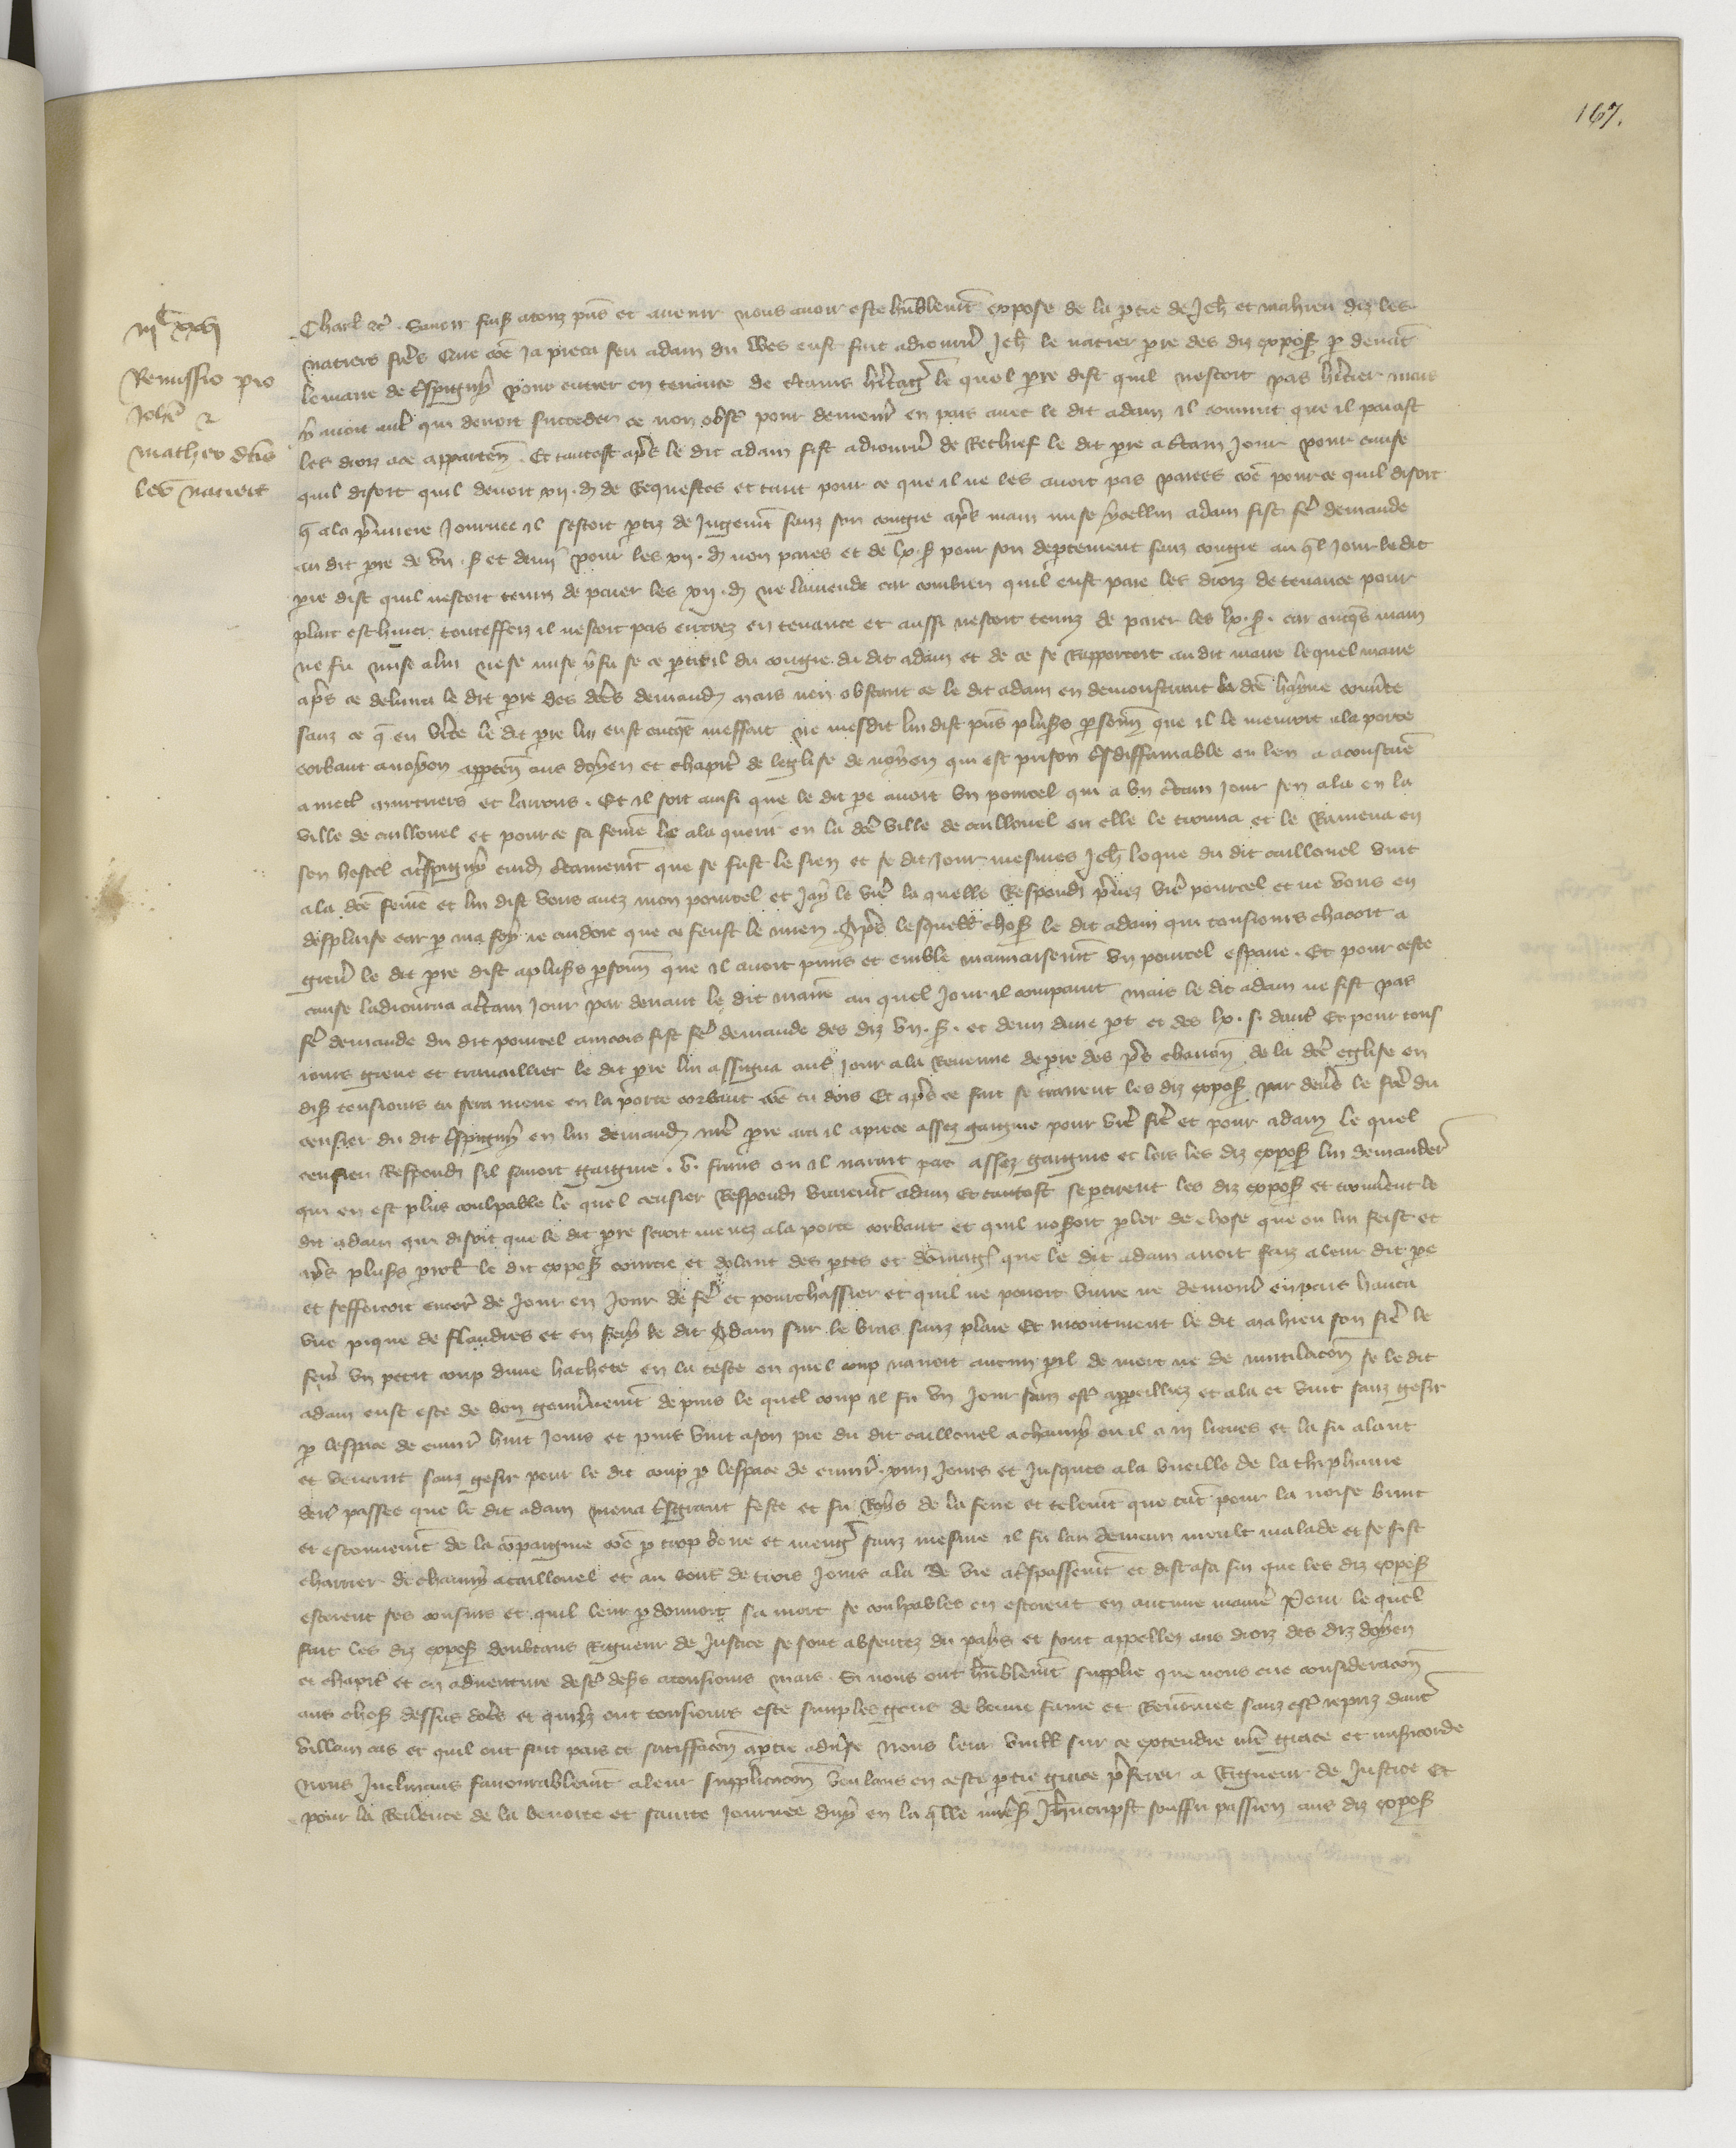 167.
iijC xxij
Remissio pro
Johe et
matheo dcis
les natiers
Charles etc. Savoir faisons a tous presens et avenir nous avoir este humblement expose de la partie de Jehan et mahieu diz les
natiers freres Que comme ja pieca feu adam du Wes eust fait adiourner Jehan le natier pere des diz exposans par devant
le maire de Espaigny pour entrer en tenance de certains heritages le quel pere dist quil nestoit pas heritier mais
y avoit autres qui devoit succeder ce non obstant pour demourer en pais avec le dit adam il convint que il paiast
les droiz a ce appartenans. Et tantost apres le dit adam fist adiourner de Rechief le dit pere a certain jour pour cause
quil disoit quil devoit xij. d. de Requestes et tant pour ce que il ne les avoit pas paiees comme pource quil disoit
que a la premiere journee il sestoit partiz de jugement sanz son congie apres main mise ycellui adam fist faire demande
au dit pere de vij. s. et demi pour les xij. d. non paies et de lx. s. pour son departement sanz congie au quel jour le dit
pere dist quil nestoit tenuz de paier les xij. d. ne lamende car combien quil eust paie les droiz de tenance pour
plait eschiver. touteffoiz il nestoit pas entrez en tenance et aussi nestoit tenuz de paier les lx. s. car oncques main
ne fu mise a lui ne se mise y fu se ce parti il du congie du dit adam et de ce se Rapportoit au dit maire le quel maire
apres ce delivra le dit pere des dictes demandes mais non obstant ce le dit adam en demonstrant la dicte hayne couverte
sanz ce que en verite le dit pere lui eust oncques meffait ne mesdit lui dist presens plusieurs personnes que il le menroit a la porte
corbaut a noyon appartenant aus doyen et chapitre de leglise de noyon qui est prison tresdiffamable ou len a acoustume
a mettre murtriers et larrons. Et il soit ainsi que le dit pere avoit un pourcel qui a un certain jour sen ala en la
ville de caillouel et pource sa femme le ala querir en la dicte ville de caillouel ou elle le trouva et le Ramena en
son hostel a Espaigny cuidant certainement que se fust le sien et se dit jour mesmes Jehan loque du dit caillouel vint
a la dicte femme et lui dist vous avez mon pourcel et jay le vostre la quelle Respondi prenez vostre pourcel et ne vous en
desplaise car par ma foy je cuidoie que ce feust le mien. Apres lesquelles choses le dit adam qui tousiours chacoit a
grever le dit pere dist a plusieurs personnes que il avoit prins et emble mauvaisement un pourcel espave. Et pour ceste
cause ladiourna a certain jour par devant le dit maire au quel jour il comparut mais le dit adam ne fist pas
faire demande du dit pourcel aincois fist faire demande des diz vij. s. et demi dune part et des lx. s. dautre Et pour tous
jours grever et travaillier le dit pere lui assigna autre jour a la Revenue de pere des pres chanoine de la dicte eglise en
disant tousiours tu sera mene en la porte corbaut comme tu dois Et apres ce fait se trairent les diz exposans par devers le frere du
censier du dit Espaigny en lui demandant nostre pere a il a piece assez gaigne pour vostre frere et pour adam le quel
censier Respondi sil savoit gaigne. v. frans ou il navoit pas assez gaigne et lors les diz exposans lui demanderent
qui en est plus coulpable le quel censier Respondi vraiement adam Et tantost se partirent les diz exposans et trouverent le
dit adam qui disoit que le dit pere seroit menez a la porte corbaut et quil nosoit parler de chose que on lui feist et
apres plusieurs paroles le dit exposant courcie et dolant des pertes et dommages que le dit adam avoit faiz a leur dit pere
et sefforcoit encores de jour en jour de faire et pourchassier et quil ne povoit vivre ne demourer en pais hauca
une pique de flandres et en fery le dit Adam sur le bras sanz plaie Et incontinent le dit mahieu son frere le
fery un petit coup dune hachete en la teste ou quel coup navoit aucun peril de mort ne de mutilacion se le dit
adam eust este de bon gouvernement depuis le quel coup il fu un jour sanz estre appareilliez et ala et vint sanz gesir
par lespace de environ huit jours et puis vint a son pie du dit caillouel a chauny ou il a iij lieues et la fu alant
et venant sanz gesir pour le dit coup par lespace de environ. xiij jours et jusques a la vueille de la thiphanie
derrenier passee que le dit adam mena tresgrant feste et fu Roys de la feve et telement que tant pour la noise bruit
et esconnement de la compaignie comme par trop boire et mengier sanz mesure il fu lan demain moult malade et se fist
charrier de chauny a caillouel et au bout de trois jours ala de vie a trespassement et dist a sa fin que les diz exposans
estoient ses cousins et quil leur pardonnoit sa mort se coulpables en estoient en aucune maniere Pour le quel
fait les diz exposans doubtans Rigueur de justice se sont absentez du pays et sont appellez aus droiz des diz doyen
et chapitre et en adventure destre desers a tousiours mais. Si nous ont humblement supplie que nous eue consideracion
aus choses dessus dictes et quilz ont tousiours este simples gens de bonne fame et Renommee sanz estre repris dautre
villain cas et quil ont fait pais et satiffacion a partie adverse nous leur vueillons sur ce extendre nostre grace et misericorde
Nous Inclinans favourablement a leur supplicacion Voulans en ceste partie grace preferer a Rigueur de Justice Et
pour la Reverence de la benoite et sainte journee duy en la quelle nostre seigneur Jhesucript souffri passion aus diz exposans